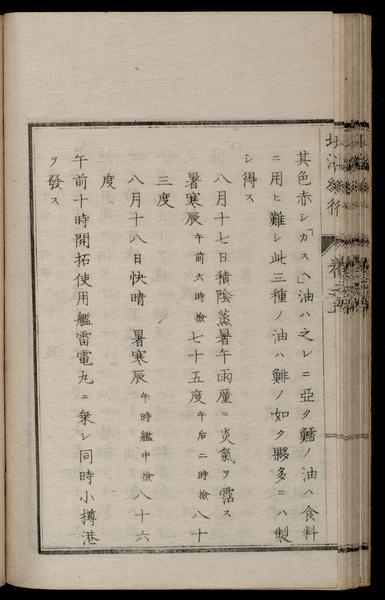 其色赤シ「カスベ」油ハ之レニ亞ク鱈ノ油ハ食料
ニ用ヒ難シ此三種ノ油ハ鯡ノ如ク夥多ニハ製
シ得ス
八月十七日積陰蒸暑午雨屢ニ炎氣ヲ霑ス
暑寒辰午前六時撿七十五度午后二時撿八十
三度
八月十八日快晴 暑寒辰午時艦中撿八十六
度
午前十時開拓使用艦雷電丸ニ乗シ同時小樽港
ヲ發ス